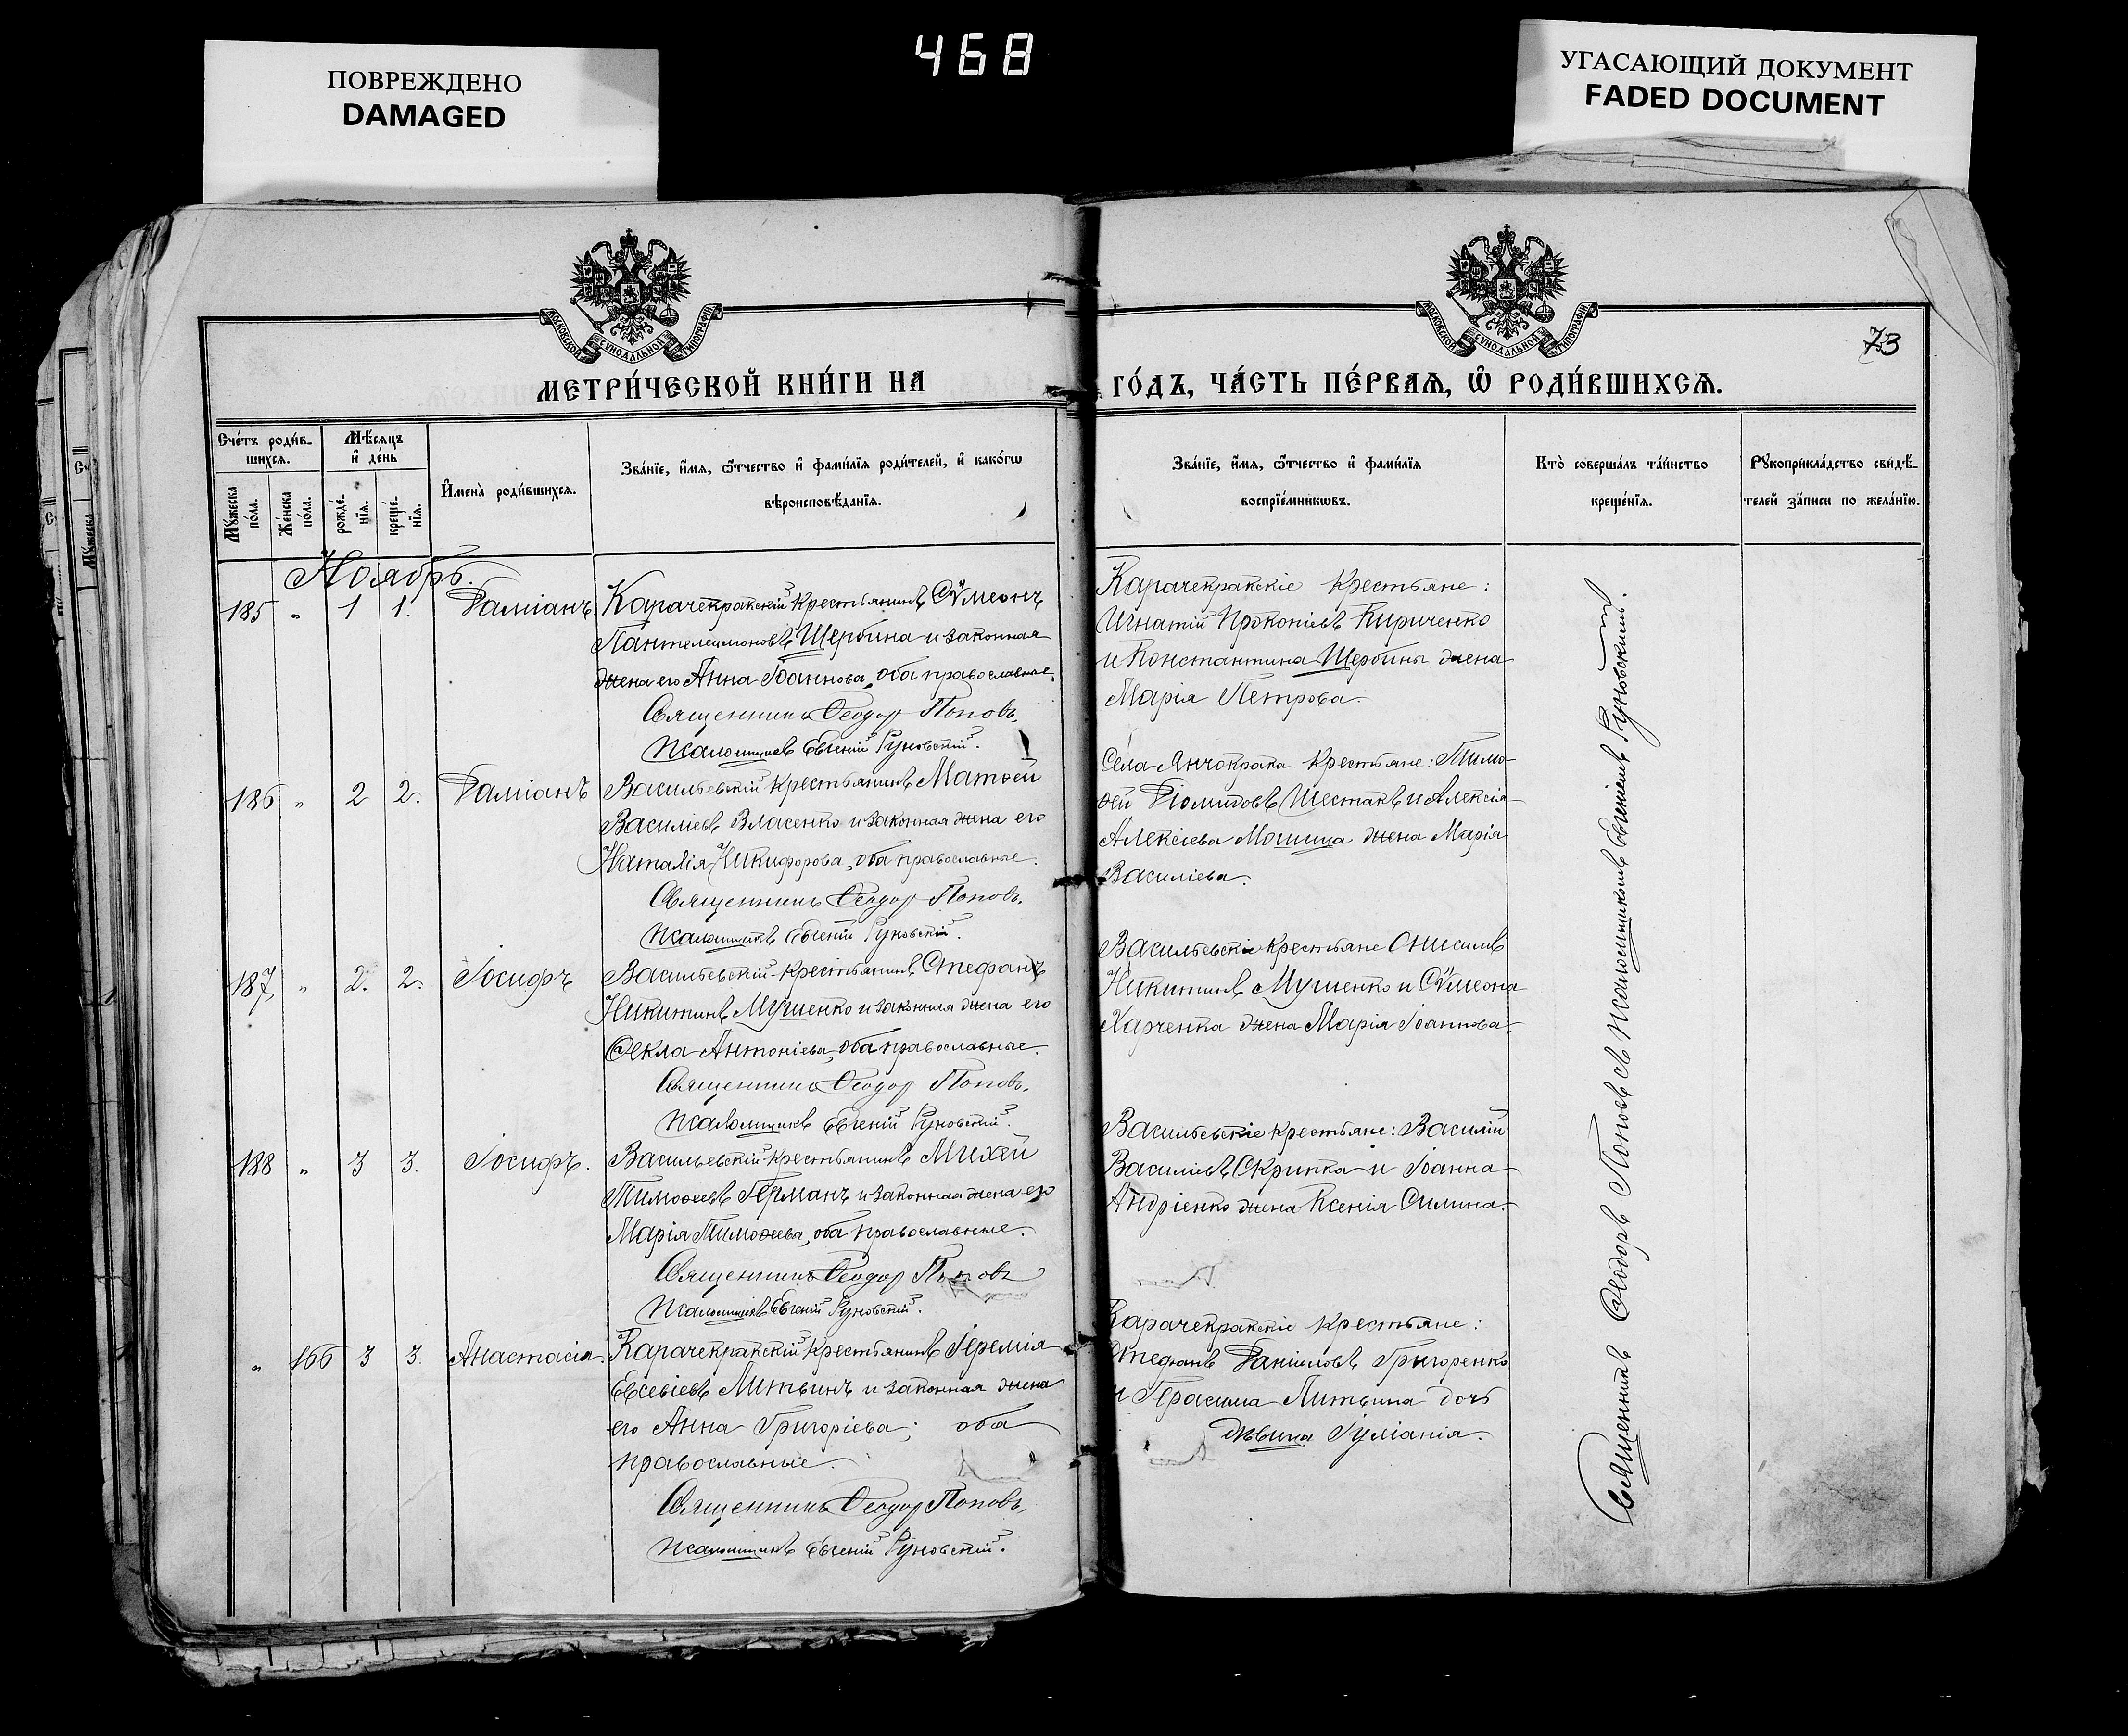 ПОВРЕЖДЕНО
DAMAGED
468
УГАСАЮЩИЙ ДОКУМЕНТ
FADED DOCUMENT
МОСКОВСКОЙ СѴНОДАЛЬНОЙ ТИПОГРАФІИ
МОСКОВСКОЙ СѴНОДАЛЬНОЙ ТИПОГРАФІИ
73
МЕТРИ́ЧЕСКОЙ КНИ́ГИ НА
ГО́ДЪ, ЧА́СТЬ ПЕ́РВАѦ, Ѡ҆ РОДИ́ВШИХСѦ.
Сче́тъ роди́в-
шихсѧ.
Мꙋ́жеска по́ла.
Же́нска по́ла.
Мѣ́сѧцъ
и҆ де́нь
рожде́-
нїѧ.
креще́-
нїѧ.
И҆мена̀ роди́вшихсѧ.
Зва́нїе, и҆́мѧ, ѻ҆́тчество и҆ фами́лїѧ роди́телей, и҆ како́гѡ
вѣроисповѣ́данїѧ.
Зва́нїе, и҆́мѧ, ѻ҆́тчество и҆ фами́лїѧ
воспрїе́мникѡвъ.
Кто̀ соверша́лъ та́инство
креще́нїѧ.
Рꙋкоприкла́дство свидѣ́-
телей за́писи по жела́нїю.
Ноябрь.
185 " 1 1. Даміанъ.
Карачекракскій крестьянинъ Сѵмеонъ
Пантелеимоновъ Щербина и законная
жена его Анна Іоаннова, оба православные.
Священникъ Ѳеодор Поповъ.
Псаломщикъ Евгеній Руновскій.
Карачекракскіе крестьяне:
Игнатій Прокопіевъ Кириченко
и Константина Щербины жена
Марія Петрова.
186 " 2 2. Даміанъ
Васильевскій крестьянинъ Матѳей
Василіевъ Власенко и законная жена его
Наталія Никифорова, оба православные.
Священникъ Ѳеодор Поповъ.
Псаломщикъ Евгеній Руновскій.
Села Янчокрака крестьяне: Тимо-
ѳей Діомидовъ Шестакъ и Алексія
Алексіева жена Марія
Василіева.
187 " 2. 2. Іосифъ
Васильевскій крестьянинъ Стефанъ
Никитинъ Мушенко и законная жена его
Ѳекла Антоніева, оба православные.
Священникъ Ѳеодор Поповъ.
Псаломщикъ Евгеній Руновскій.
Васильевскіе крестьяне Онисимъ
Никитинъ Мушенко и Сѵмеона
Харченка жена Марія Іоаннова
188 " 3 3. Іосифъ.
Васильевскій крестьянинъ Михей
Тимоѳеевъ Германъ и законная жена его
Марія Тимоѳеева, оба православные.
Священникъ Ѳеодор Поповъ
Псаломщикъ Евгеній Руновскій.
Васильевскіе крестьяне: Василій
Василіевъ Скрипка и Іоанна
Андріенко жена Ксенія Силина.
" 166 3 3. Анастасія.
Карачекракскій крестьянинъ Іеремія
Евсевіевъ Литвинъ и законная жена
его Анна Григоріева; оба
православные.
Священникъ Ѳеодор Поповъ,
Псаломщикъ Евгеній Руновскій.
Карачекракскіе крестьяне:
Стефанъ Даніиловъ Григоренко
и Герасима Литвина дочь
дѣвица Іуліанія.
Священникъ Ѳеодоръ Поповъ съ псаломщикомъ Евгеніемъ Руновскимъ.